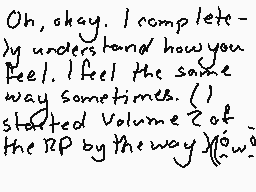 Oh, okay. I complete-
ly understand how you
feel. I feel the same
way sometimes. (I
started Volume 2 of
the RP by the way)(ówò